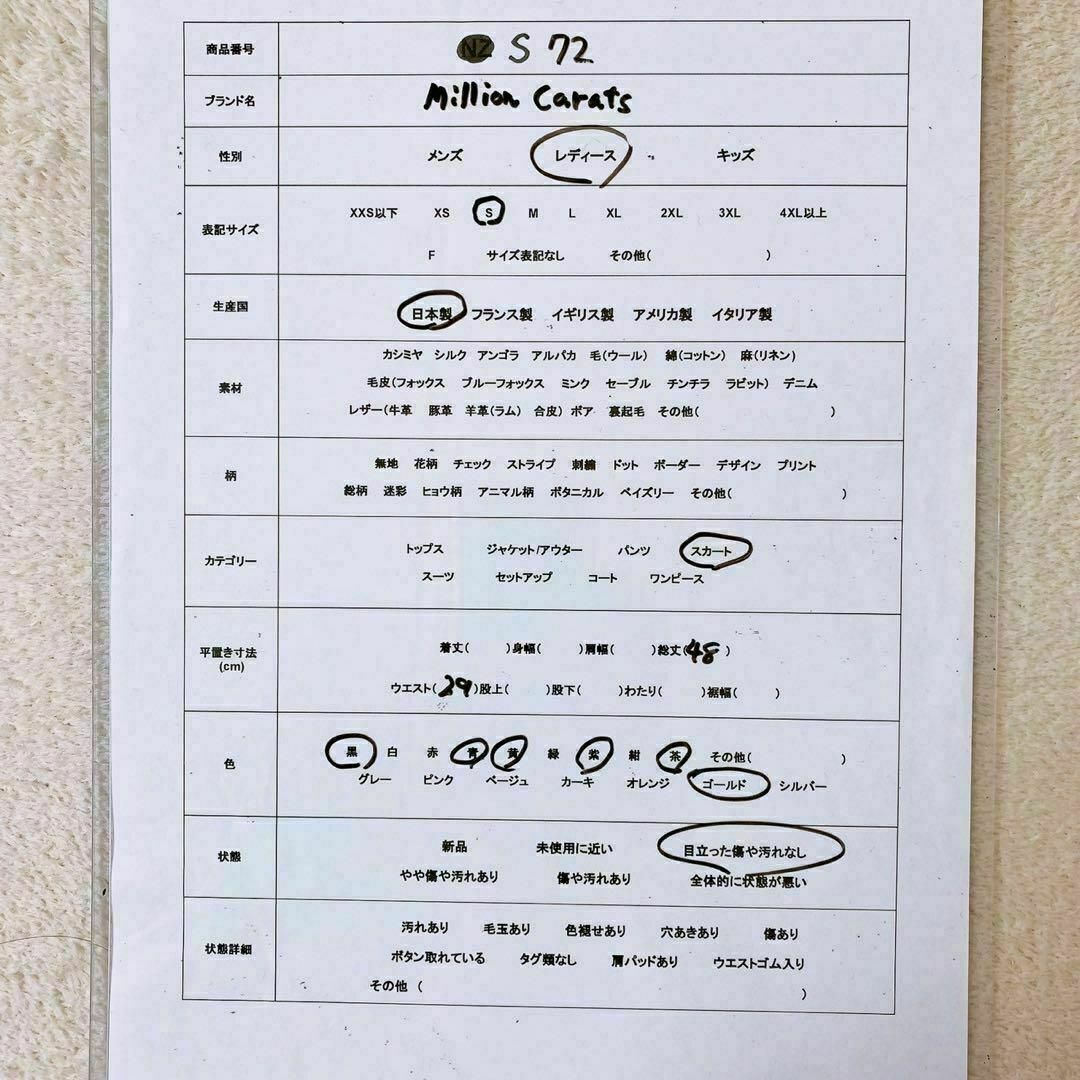 商品番号 NZ S 72
ブランド名 Million Carats
性別 メンズ レディース キッズ
XXS以下 XS S M L XL 2XL 3XL 4XL以上
表記サイズ
F サイズ表記なし その他( )
生産国 日本製 フランス製 イギリス製 アメリカ製 イタリア製
カシミヤ シルク アンゴラ アルパカ 毛(ウール) 綿(コットン) 麻(リネン)
素材 毛皮(フォックス ブルーフォックス ミンク セーブル チンチラ ラビット) デニム
レザー(牛革 豚革 羊革(ラム) 合皮) ボア 裏起毛 その他( )
無地 花柄 チェック ストライプ 刺繍 ドット ボーダー デザイン プリント
柄
総柄 迷彩 ヒョウ柄 アニマル柄 ボタニカル ペイズリー その他( )
トップス ジャケット/アウター パンツ スカート
カテゴリー
スーツ セットアップ コート ワンピース
平置き寸法 着丈( )身幅( )肩幅( )総丈(48 )
(cm)
ウエスト(29)股上( )股下( )わたり( )裾幅( )
黒 白 赤 青 黄 緑 紫 紺 茶 その他( )
色
グレー ピンク ベージュ カーキ オレンジ ゴールド シルバー
新品 未使用に近い 目立った傷や汚れなし
状態
やや傷や汚れあり 傷や汚れあり 全体的に状態が悪い
汚れあり 毛玉あり 色褪せあり 穴あきあり 傷あり
状態詳細
ボタン取れている タグ類なし 肩パッドあり ウエストゴム入り
その他 ( )